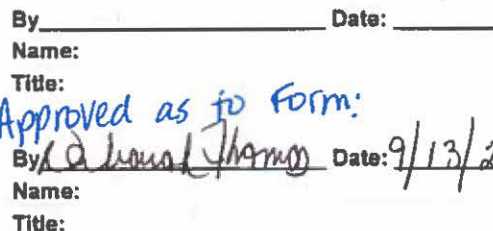 By Date:
Name:
Title:
Approved as to Form:
By Date: 9/13/2
Name:
Title: